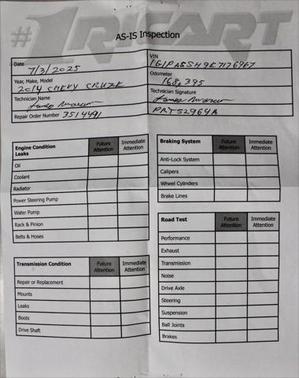 #1 RICART
AS-IS Inspection
Date 7/3/2025
VIN 1G1PA5SH9E7126967
Year, Make, Model 2014 CHEVY CRUZE
Odometer 168,395
Technician Name
Technician Signature
Repair Order Number 3514491
Engine Condition Future Attention Immediate Attention
Leaks
Oil
Coolant
Radiator
Power Steering Pump
Water Pump
Rack & Pinion
Belts & Hoses
Braking System Future Attention Immediate Attention
Anti-Lock System
Calipers
Wheel Cylinders
Brake Lines
Transmission Condition Future Attention Immediate Attention
Repair or Replacement
Mounts
Leaks
Boots
Drive Shaft
Road Test Future Attention Immediate Attention
Performance
Exhaust
Transmission
Noise
Drive Axle
Steering
Suspension
Ball Joints
Brakes